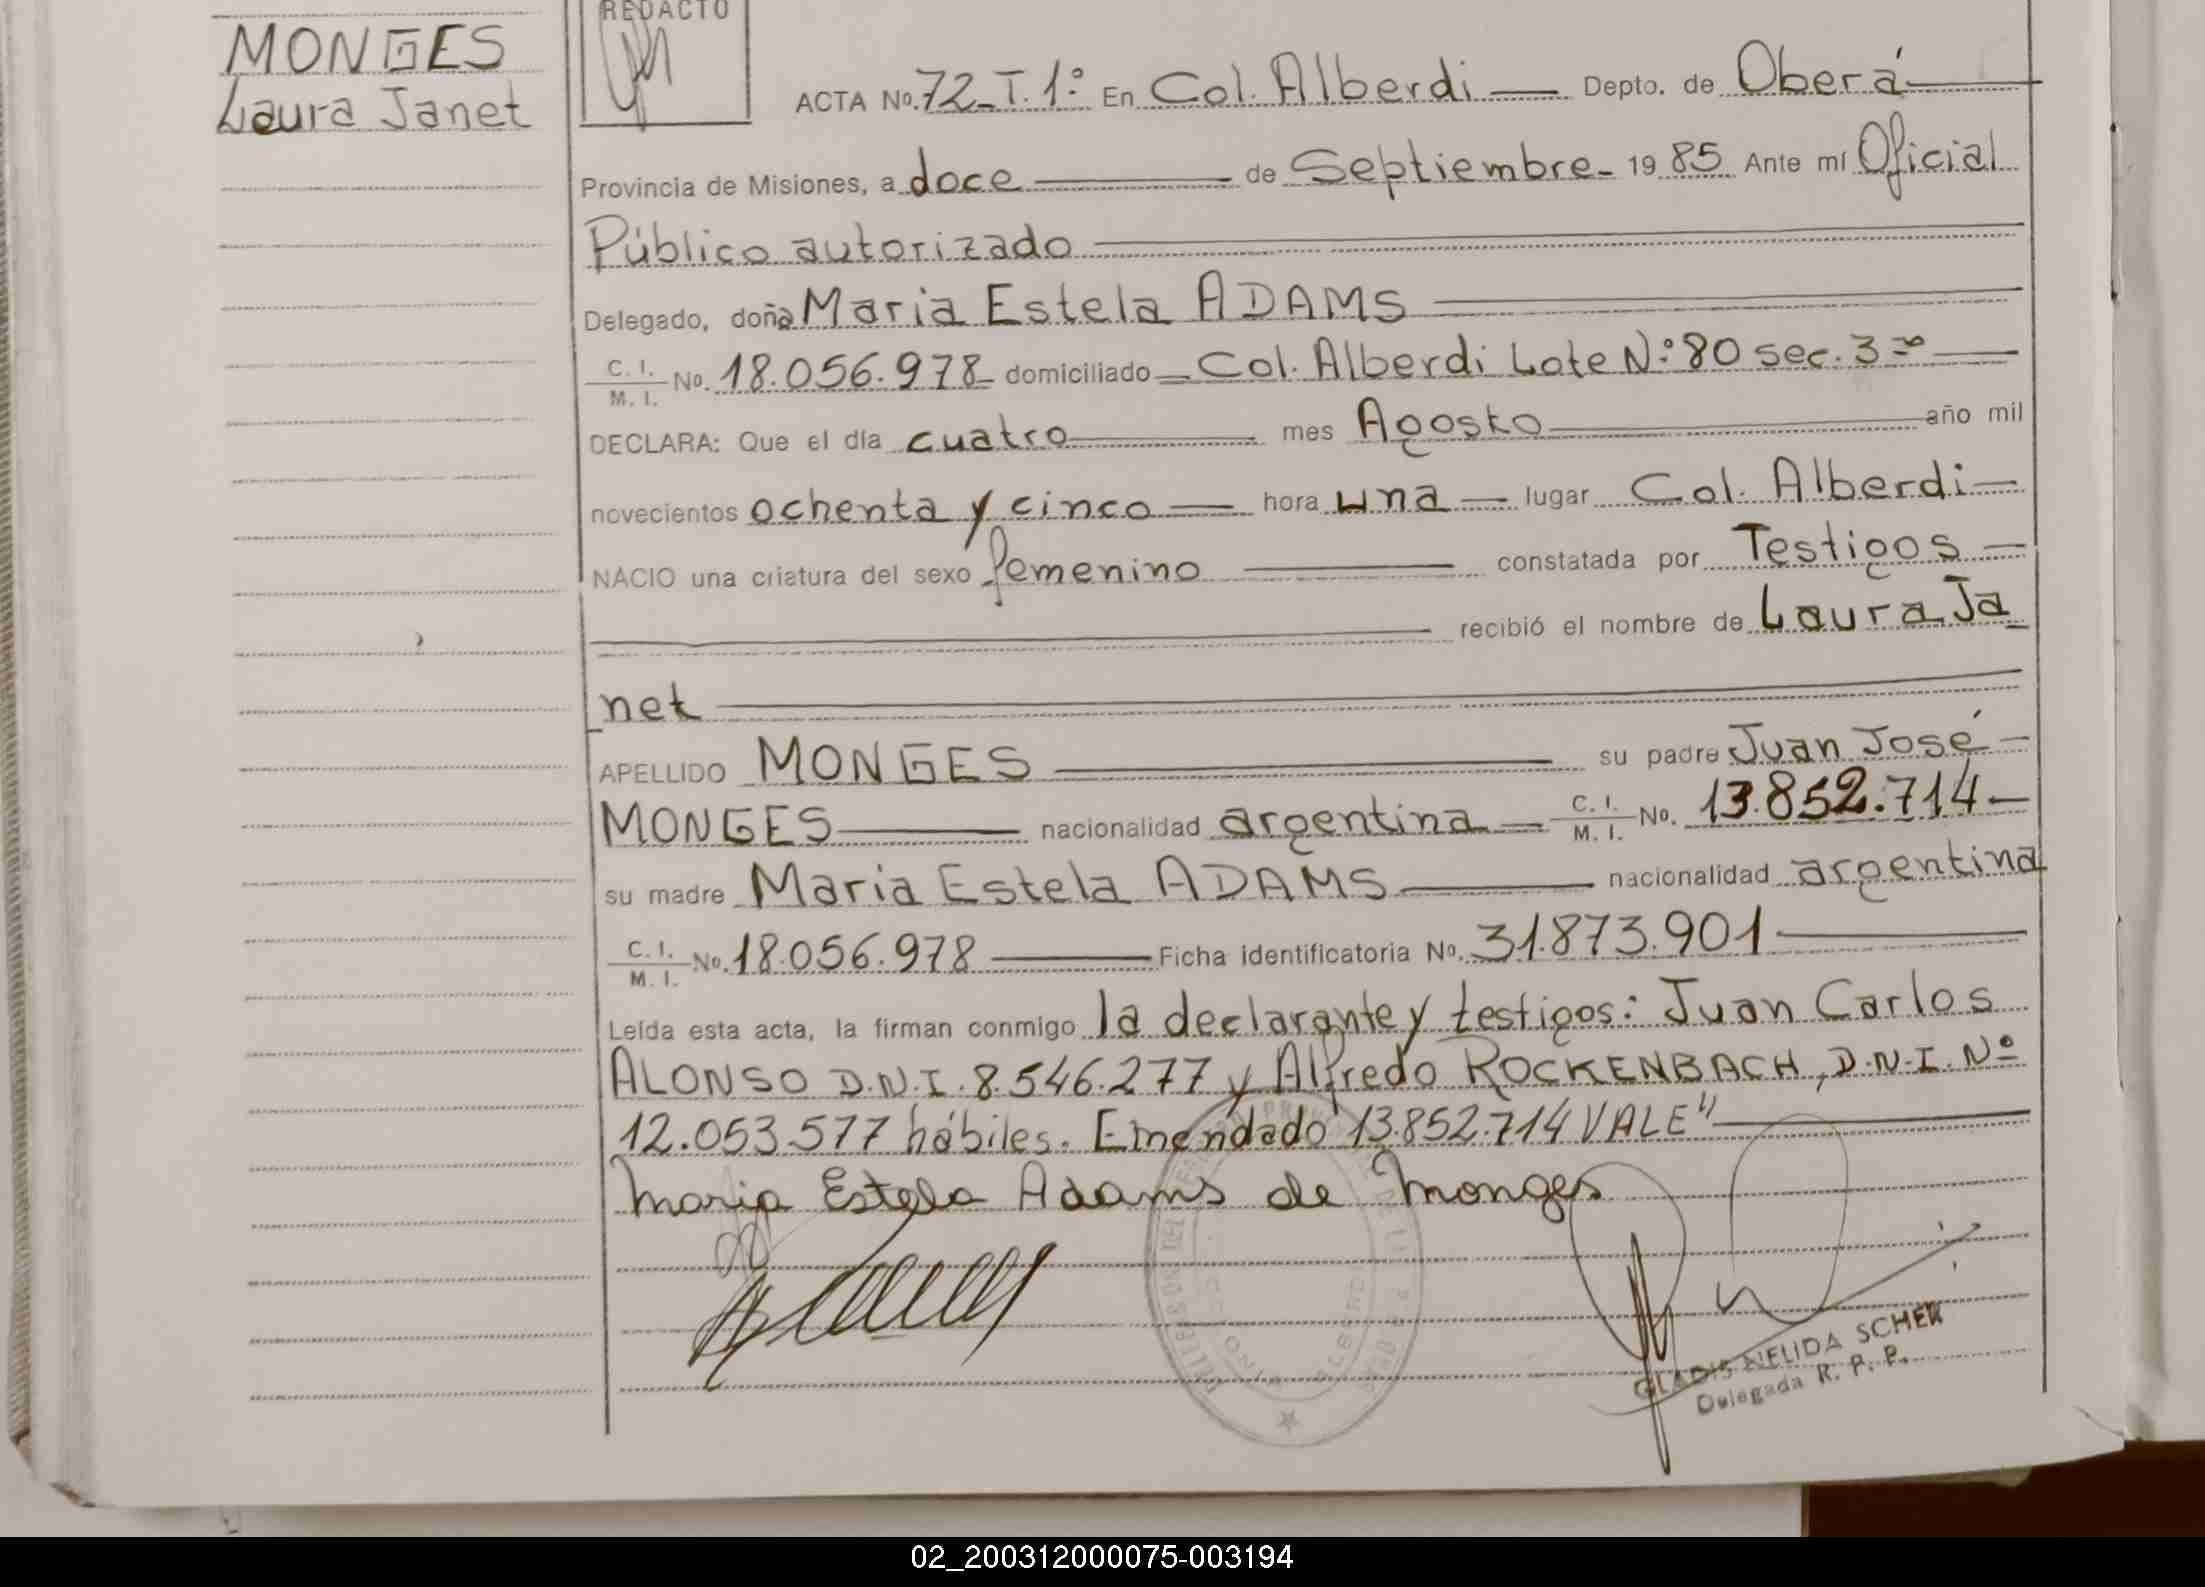 MONGES
Laura Janet
REDACTO
ACTA No. 72_T.1º En Col. Alberdi — Depto. de Oberá —
Provincia de Misiones, a doce — de Septiembre - 1985 Ante mí Oficial
Público autorizado —
Delegado, doña Maria Estela ADAMS —
C. I.
M. I. No. 18.056.978 domiciliado — Col. Alberdi Lote Nº 80 sec. 3ra —
DECLARA: Que el día cuatro — mes Agosto — año mil
novecientos ochenta y cinco — hora una — lugar Col. Alberdi —
NACIO una criatura del sexo femenino — constatada por Testigos —
— recibió el nombre de Laura Ja_
_net —
APELLIDO MONGES — su padre Juan José —
MONGES — nacionalidad argentina — C. I.
M. I. No. 13.852.714 —
su madre Maria Estela ADAMS — nacionalidad argentina
C. I.
M. I. No. 18.056.978 — Ficha identificatoria No. 31.873.901 —
Leída esta acta, la firman conmigo la declarante y testigos: Juan Carlos
ALONSO D.N.I. 8.546.277 y Alfredo ROCKENBACH, D.N.I. Nº
12.053.577 hábiles. Emendado 13.852.714 VALE" —
Maria Estela Adams de Monges
GLADIS NELIDA SCHER
Delegada R. P. P.
02_200312000075-003194